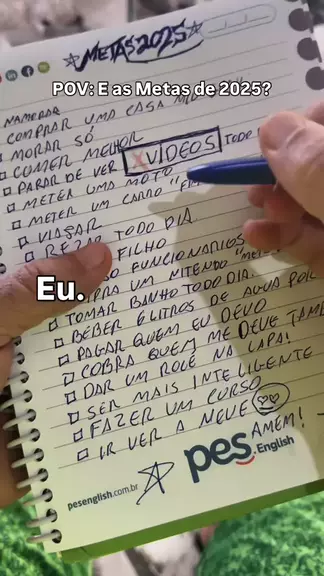 METAS 2025
POV: E as Metas de 2025?
NAMORAR
COMPRAR UMA CASA
MORAR SÓ
COMER MELHOR
PARAR DE VER XVIDEOS TODO
METER UMA MOTO
METER UM CARRO "
VIAJAR
REZAR TODO DIA
FILHO
FUNCIONARIOS
Eu.
UM NITENDO
TOMAR BANHO TODO DIA
BEBER 6 LITROS DE AGUA POR
PAGAR QUEM EU DEVO
COBRA QUEM ME DEVE TAMB
DAR UM ROLE NA LAPA!
SER MAIS INTELIGENTE
FAZER UM CURSO
IR VER A NEVE
AMEM!
pesenglish.com.br
pes.English